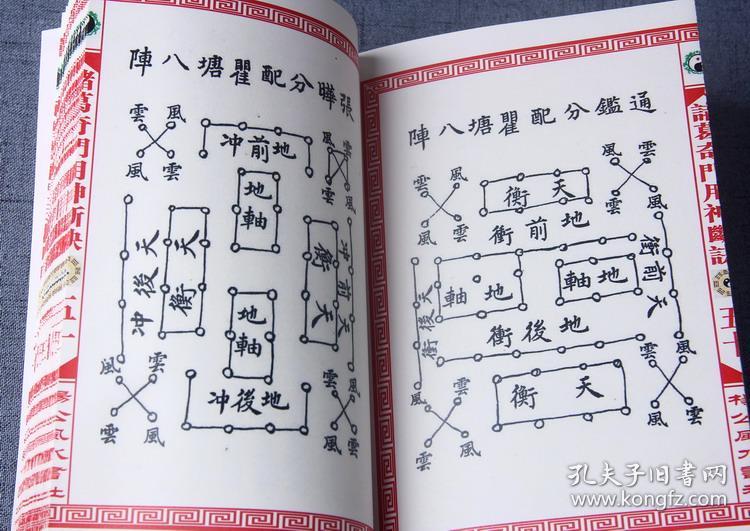 通鑑分配瞿塘八陣
風 雲
雲 風
雲 風
風 雲
天衡
地前衝
天前衝
地軸
地軸
天後衝
地後衝
天衡
雲 風
風 雲
雲 風
風 雲
諸葛奇門用神斷訣
五十
楊公風水書社
張曄分配瞿塘八陣
風 雲
雲 風
風 雲
雲 風
地前冲
地軸
天前冲
天衡
天衡
天後冲
地軸
地後冲
雲 風
風 雲
雲 風
風 雲
諸葛奇門用神斷訣
五十一
楊公風水書社
孔夫子旧书网
www.kongfz.com